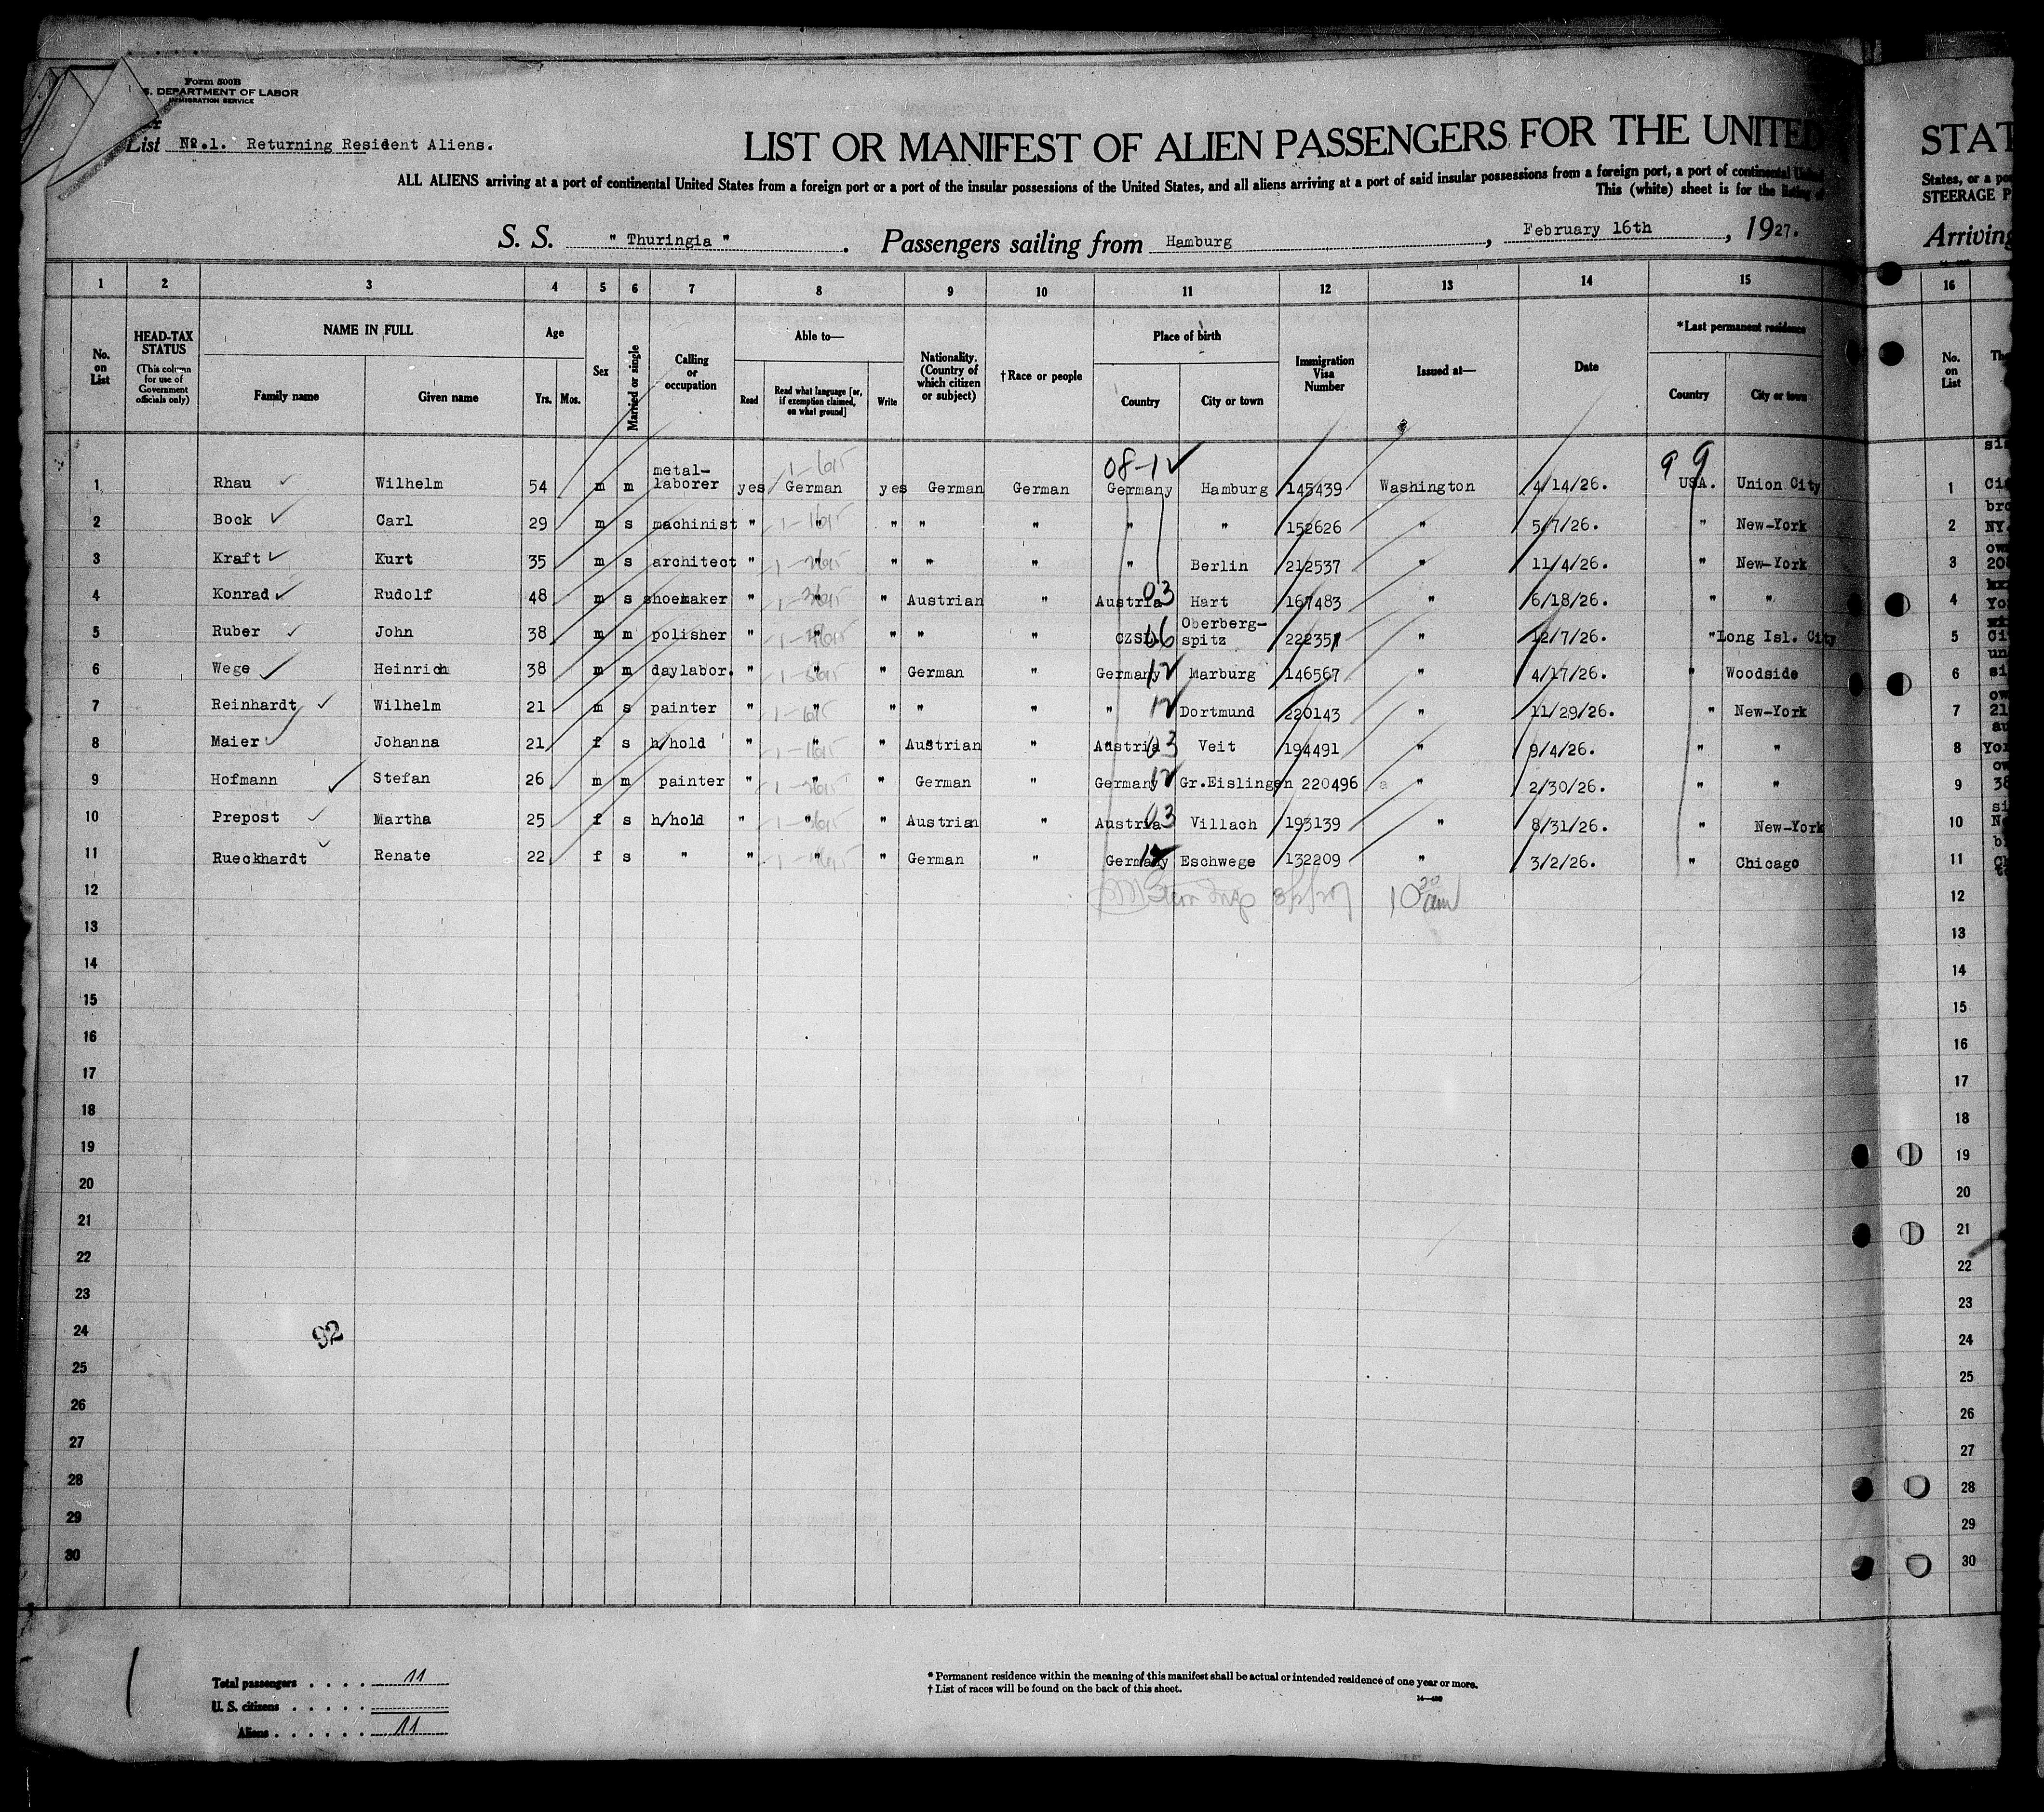 Form 500B
S. DEPARTMENT OF LABOR
IMMIGRATION SERVICE
List No.1. Returning Resident Aliens.
LIST OR MANIFEST OF ALIEN PASSENGERS FOR THE UNITED
STAT
ALL ALIENS arriving at a port of continental United States from a foreign port or a port of the insular possessions of the United States, and all aliens arriving at a port of said insular possessions from a foreign port, a port of continental United
States, or a po
This (white) sheet is for the listing of
STEERAGE P
S. S. " Thuringia ". Passengers sailing from Hamburg, February 16th, 1927.
Arriving
1 2 3 4 5 6 7 8 9 10 11 12 13 14 15 16
No. on List
HEAD-TAX STATUS
(This column for use of Government officials only)
NAME IN FULL
Family name Given name
Age
Yrs. Mos.
Sex
Married or single
Calling or occupation
Able to—
Read
Read what language [or, if exemption claimed, on what ground]
Write
Nationality. (Country of which citizen or subject)
†Race or people
Place of birth
Country City or town
Immigration Visa Number
Issued at—
Date
*Last permanent residence
Country City or town
No. on List
08-12 9 9
1 Rhau Wilhelm 54 m m metal-laborer yes German yes German German Germany Hamburg 145439 Washington 4/14/26. USA. Union City 1
2 Bock Carl 29 m s machinist " " " " " " " 152626 " 5/7/26. " New-York 2
3 Kraft Kurt 35 m s architect " " " " " " Berlin 212537 " 11/4/26. " New-York 3
4 Konrad Rudolf 48 m s shoemaker " " " Austrian " Austria 03 Hart 167483 " 6/18/26. " " 4
5 Ruber John 38 m m polisher " " " " " CZSL. 06 Oberberg-spitz 222357 " 12/7/26. " Long Isl. City 5
6 Wege Heinrich 38 m m daylabor. " " " German " Germany 12 Marburg 146567 " 4/17/26. " Woodside 6
7 Reinhardt Wilhelm 21 m s painter " " " " " " 12 Dortmund 220143 " 11/29/26. " New-York 7
8 Maier Johanna 21 f s h/hold " " " Austrian " Austria 03 Veit 194491 " 9/4/26. " " 8
9 Hofmann Stefan 26 m m painter " " " German " Germany 12 Gr.Eislingen 220496 " 2/30/26. " " 9
10 Prepost Martha 25 f s h/hold " " " Austrian " Austria 03 Villach 193139 " 8/31/26. " New-York 10
11 Rueckhardt Renate 22 f s " " " " German " Germany 12 Eschwege 132209 " 3/2/26. " Chicago 11
12 10 30 am 12
13 13
14 14
15 15
16 16
17 17
18 18
19 19
20 20
21 21
22 22
23 23
24 92 24
25 25
26 26
27 27
28 28
29 29
30 30
Total passengers . . . . 11
U. S. citizens . . . . .
Aliens . . . . . . 11
* Permanent residence within the meaning of this manifest shall be actual or intended residence of one year or more.
† List of races will be found on the back of this sheet.